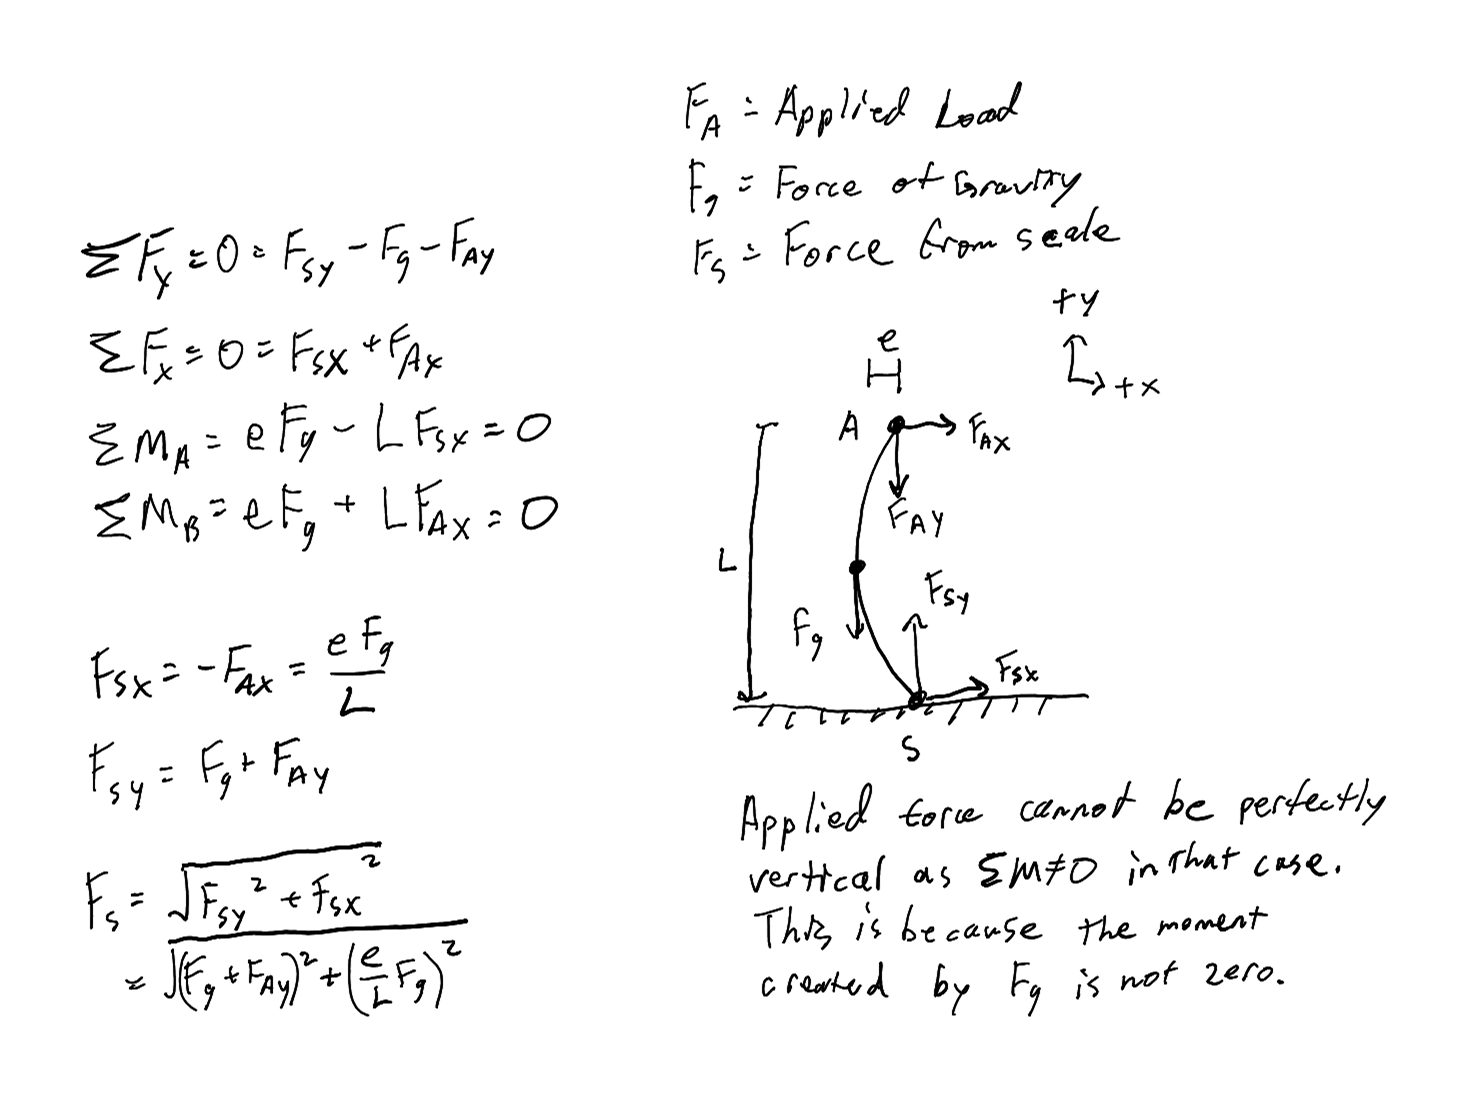 F_A = Applied Load
F_g = Force of Gravity
F_S = Force from scale
ΣF_y = 0 = F_Sy - F_g - F_Ay
ΣF_x = 0 = F_Sx + F_Ax
ΣM_A = eF_g - LF_Sx = 0
ΣM_B = eF_g + LF_Ax = 0
F_Sx = -F_Ax = eF_g / L
F_Sy = F_g + F_Ay
F_S = √(F_Sy² + F_Sx²)
= √((F_g + F_Ay)² + (e/L F_g)²)
+y
+x
e
A
F_Ax
F_Ay
L
F_Sy
F_g
F_Sx
S
Applied force cannot be perfectly
vertical as ΣM≠0 in that case.
This is because the moment
created by F_g is not zero.